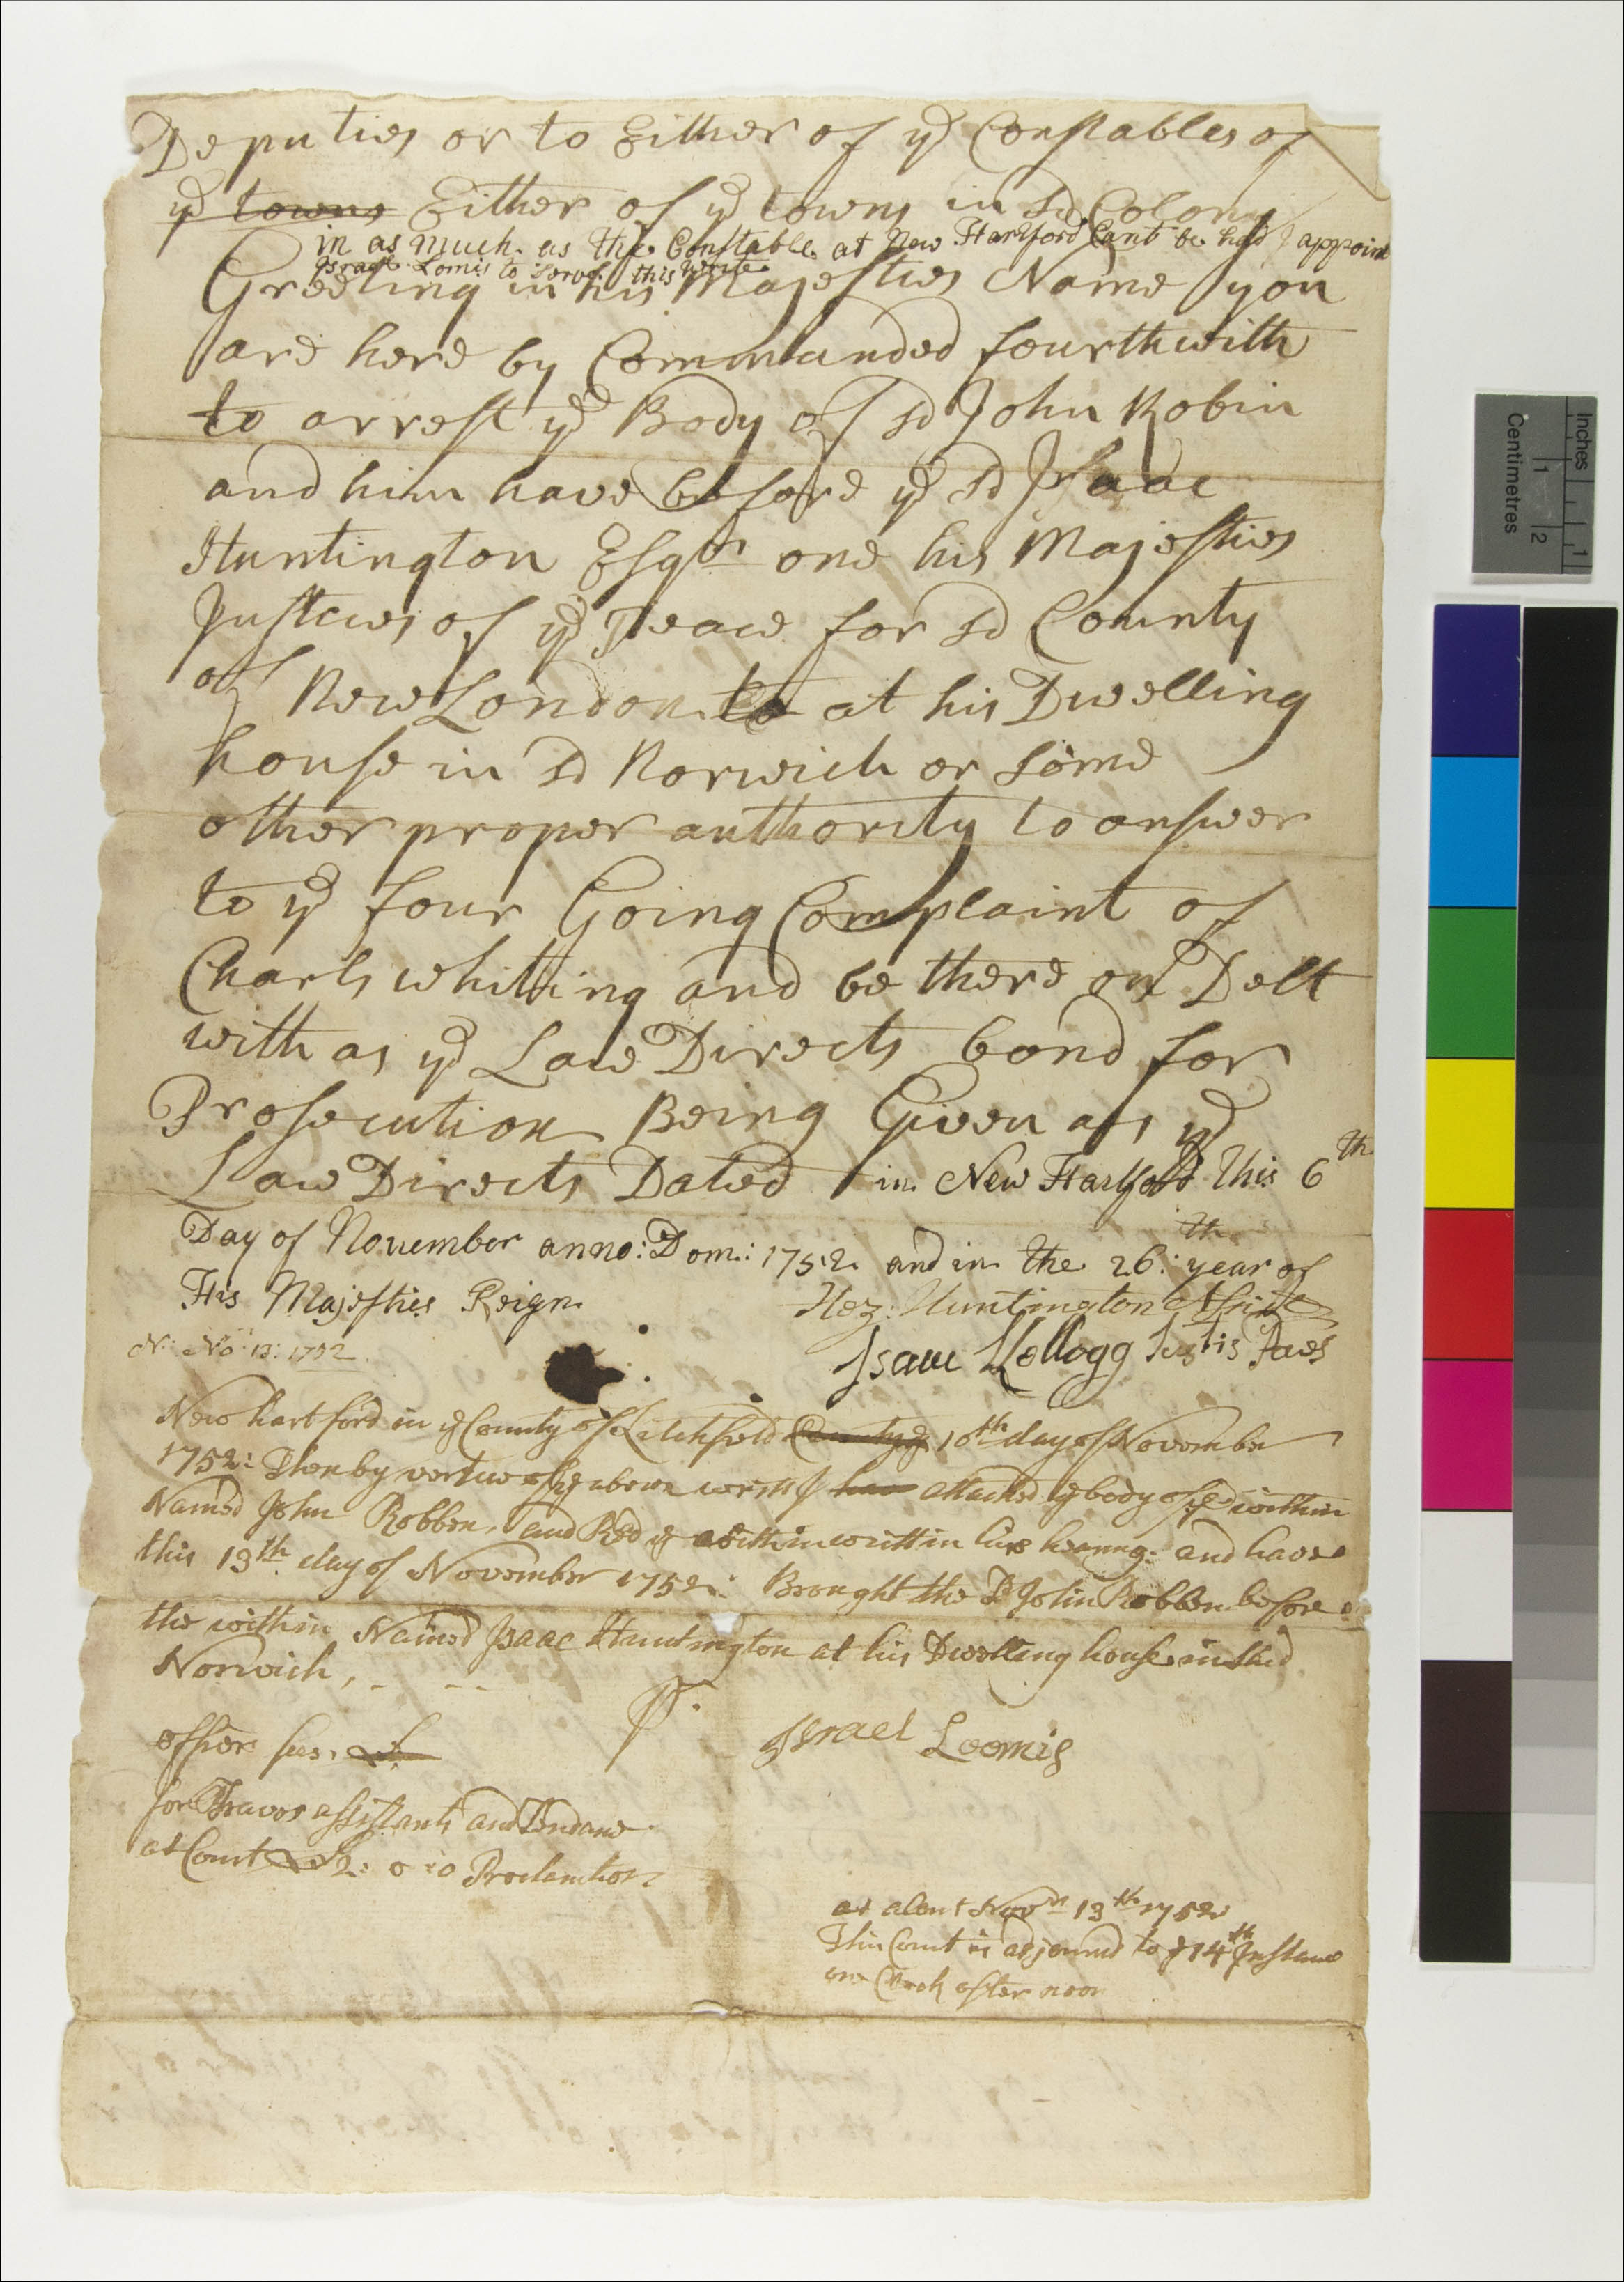 Deputies or to Either of ye Constables of
ye towns Either of ye towns in sd Colony
in as much as the Constable at New Hartford Cant be had I appoint
Israel Lomis to serve this Write
Greeting in his Majesties Name you
are here by Commanded fourthwith
to arrest ye Body of sd John Robin
and him have before ye sd Isaac
Huntington Esqr one his Majesties
Justcies of ye Peace for sd County
of New London to at his Dwelling
house in sd Norwich or some
other proper authority to answer
to ye four Going Complaint of
Charls whiting and be there on Delt
with as ye Law Directs bond for
Prosecution Being Given as ye
Law Directs Dated in New Hartford this 6th
Day of November anno: Dom: 1752 and in the 26:th year of
His Majesties Reign
Hez: Huntington Assist
N: No 13: 1752
Isaac Kellogg Justis Paes
New hartford in ye County of Litchfield County ye 10th day of November
1752: Then by vertue of ye above writt I have attached ye body of ye within
Named John Robben, and Red ye within writt in his hearing: and have
this 13th day of November 1752: Brought the sd John Robben before
the within Named Isaac Huntington at his Dwelling house in said
Norwich,
Israel Loomis
officers fees,
for Travos assistants and Tendance
at Court £2: 0: 0 Proclamtion
at a Court Novr 13th 1752
This Court is adjourned to ye 14th Instant
one Clock after noon